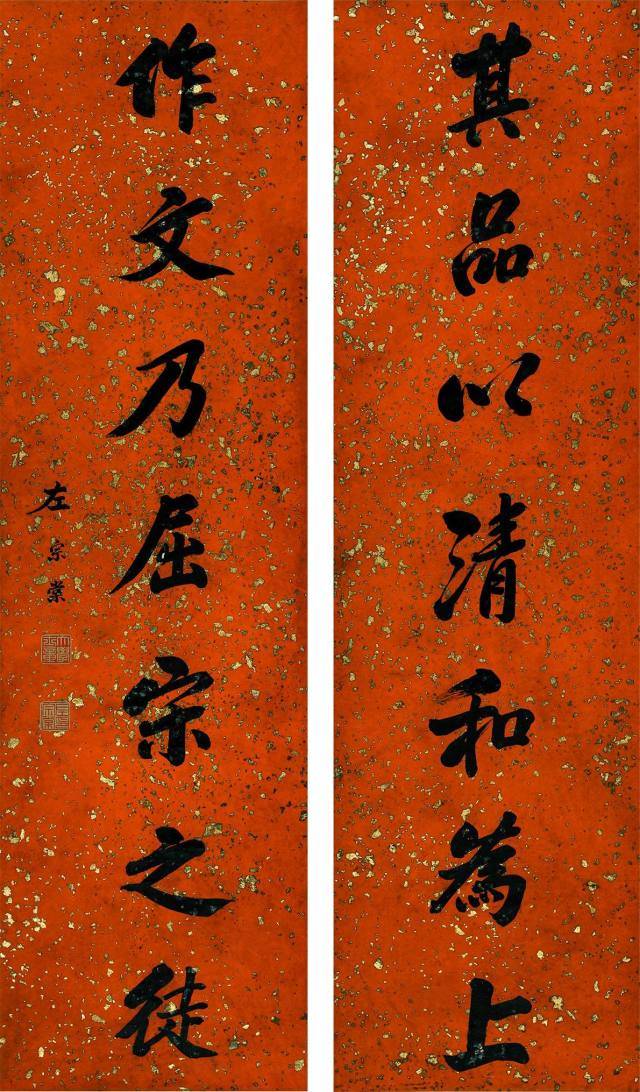 其品以清和為上
作文乃屈宗之徒
左宗棠